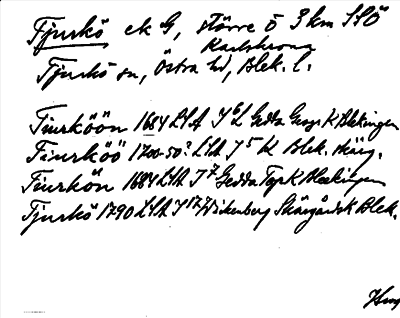 Tjurkö ek G, större ö 3 km SSÖ
Karlskrona
Tjurkö sn, Östra hd, Blek. l.
Tiurköön 1684 LSA J 6 L Gedda Geogr. K Blekingen
Tiurköö 1700-50? LSA J 5 K Blek. skärg.
Tiurkön 1684 LSA J 7 Gedda Top K Bleekingen
Tjurkö 1790 LSA J 17 Wickenberg Skärgårdsk Blek.